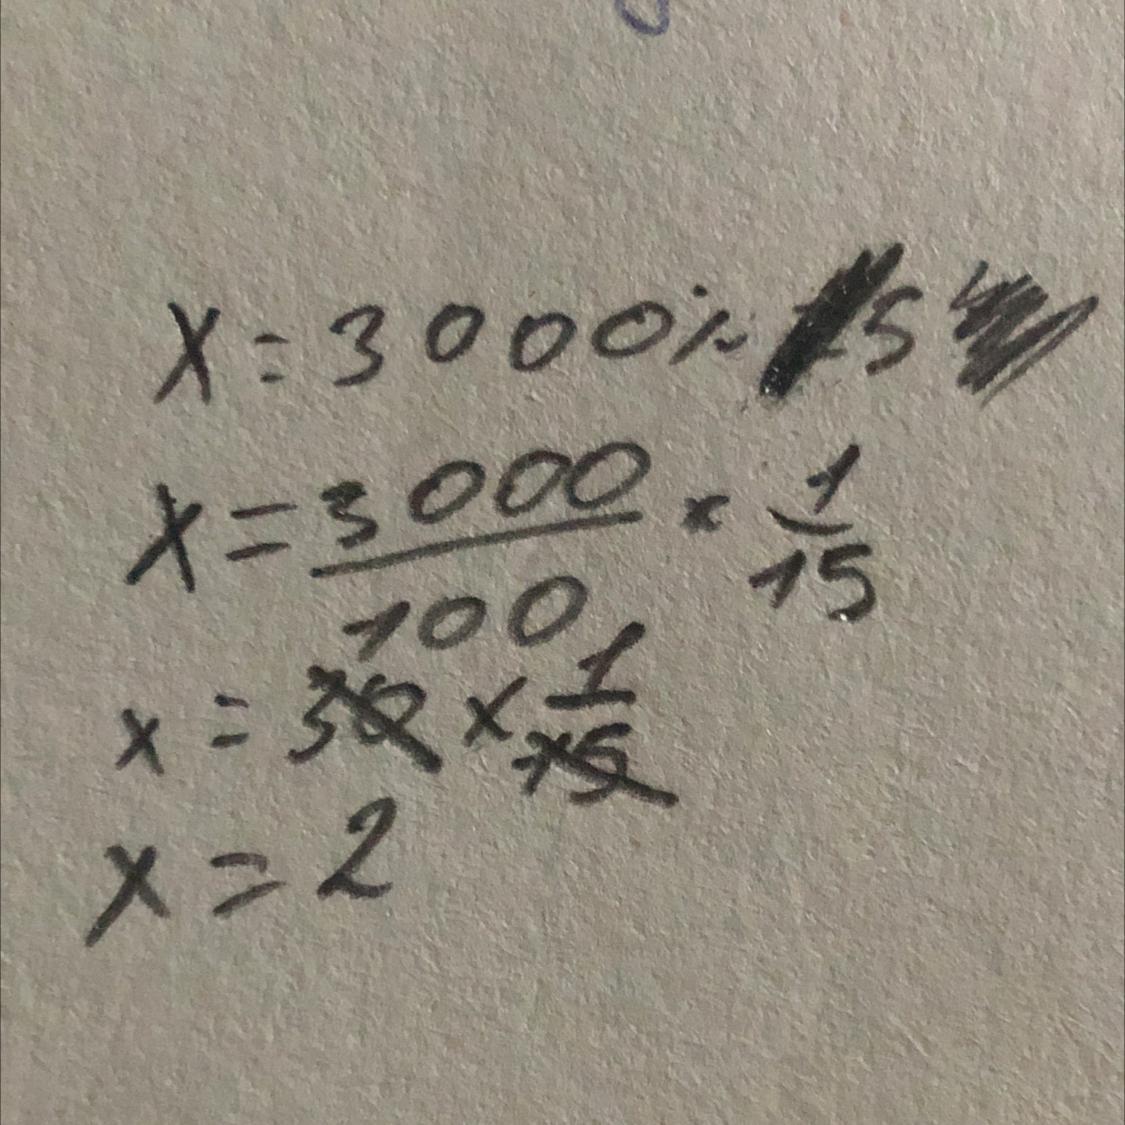 x = 3000% 5
x = 3000/100 × 1/15
x = 30 × 1/15
x = 2